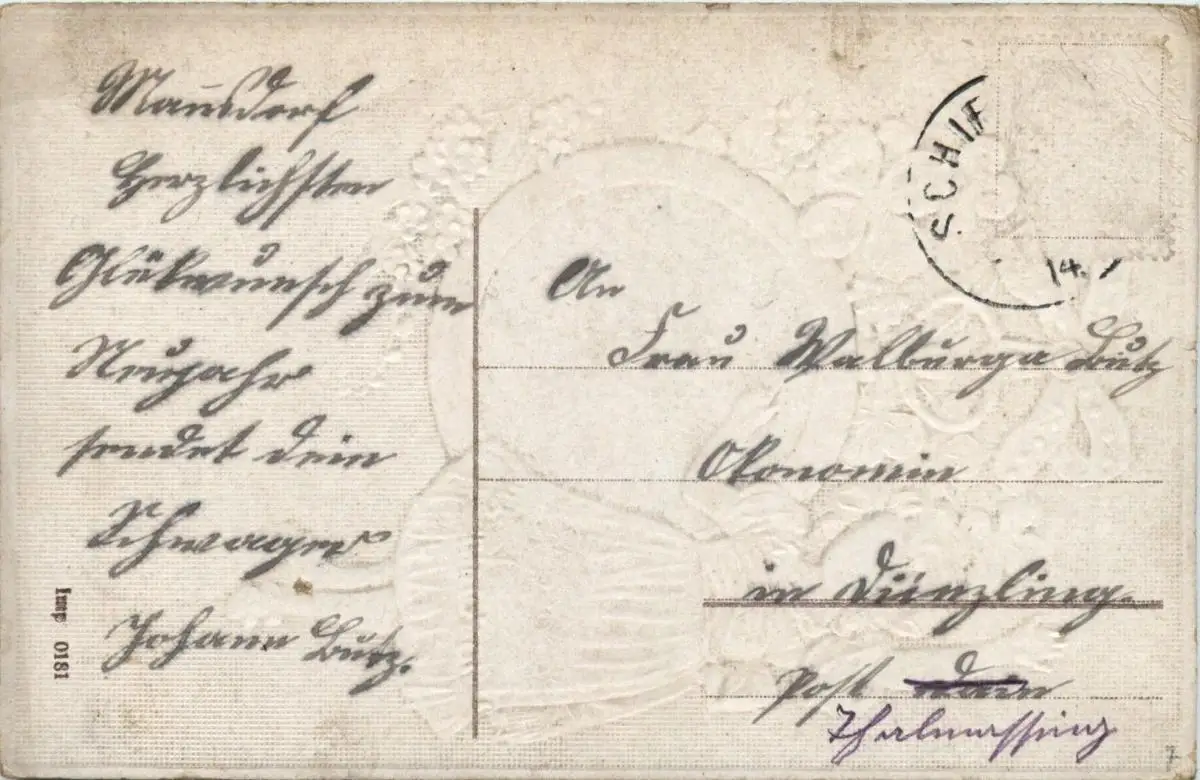 Mausdorf
Herzlichsten
Glükwunsch zum
Neujahr
sendet dein
Schwager
Johann Butz.
Imp 0181
SCHIE
14.
An
Frau Walburga Butz
Ökonomin
in Dünzling.
Post
Thalmassing